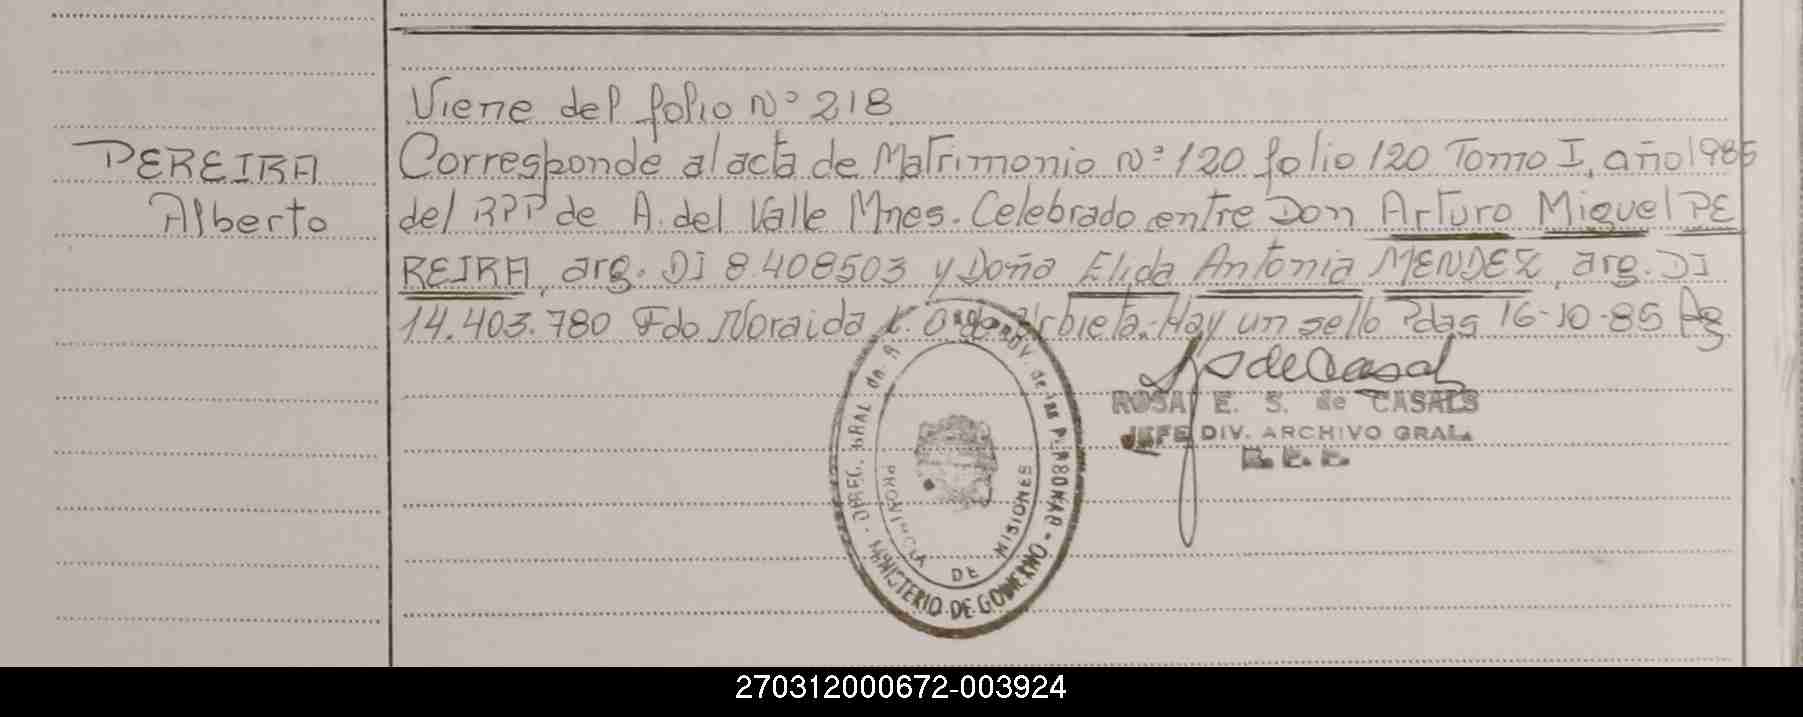 Viene del folio Nº 218
PEREIRA
Alberto
Corresponde al acta de Matrimonio Nº 120 folio 120 Tomo I, año 1985
del RPP de A. del Valle Mnes. Celebrado entre Don Arturo Miguel PE
REIRA, arg. DI 8.408503 y Doña Elida Antonia MENDEZ, arg. DI
14.403.780 Fdo Noraida Urbieta. Hay un sello Pdas 16-10-85
ROSA E. S. de CASALS
JEFE DIV. ARCHIVO GRAL.
MINISTERIO DE GOBIERNO
PROVINCIA DE MISIONES
270312000672-003924